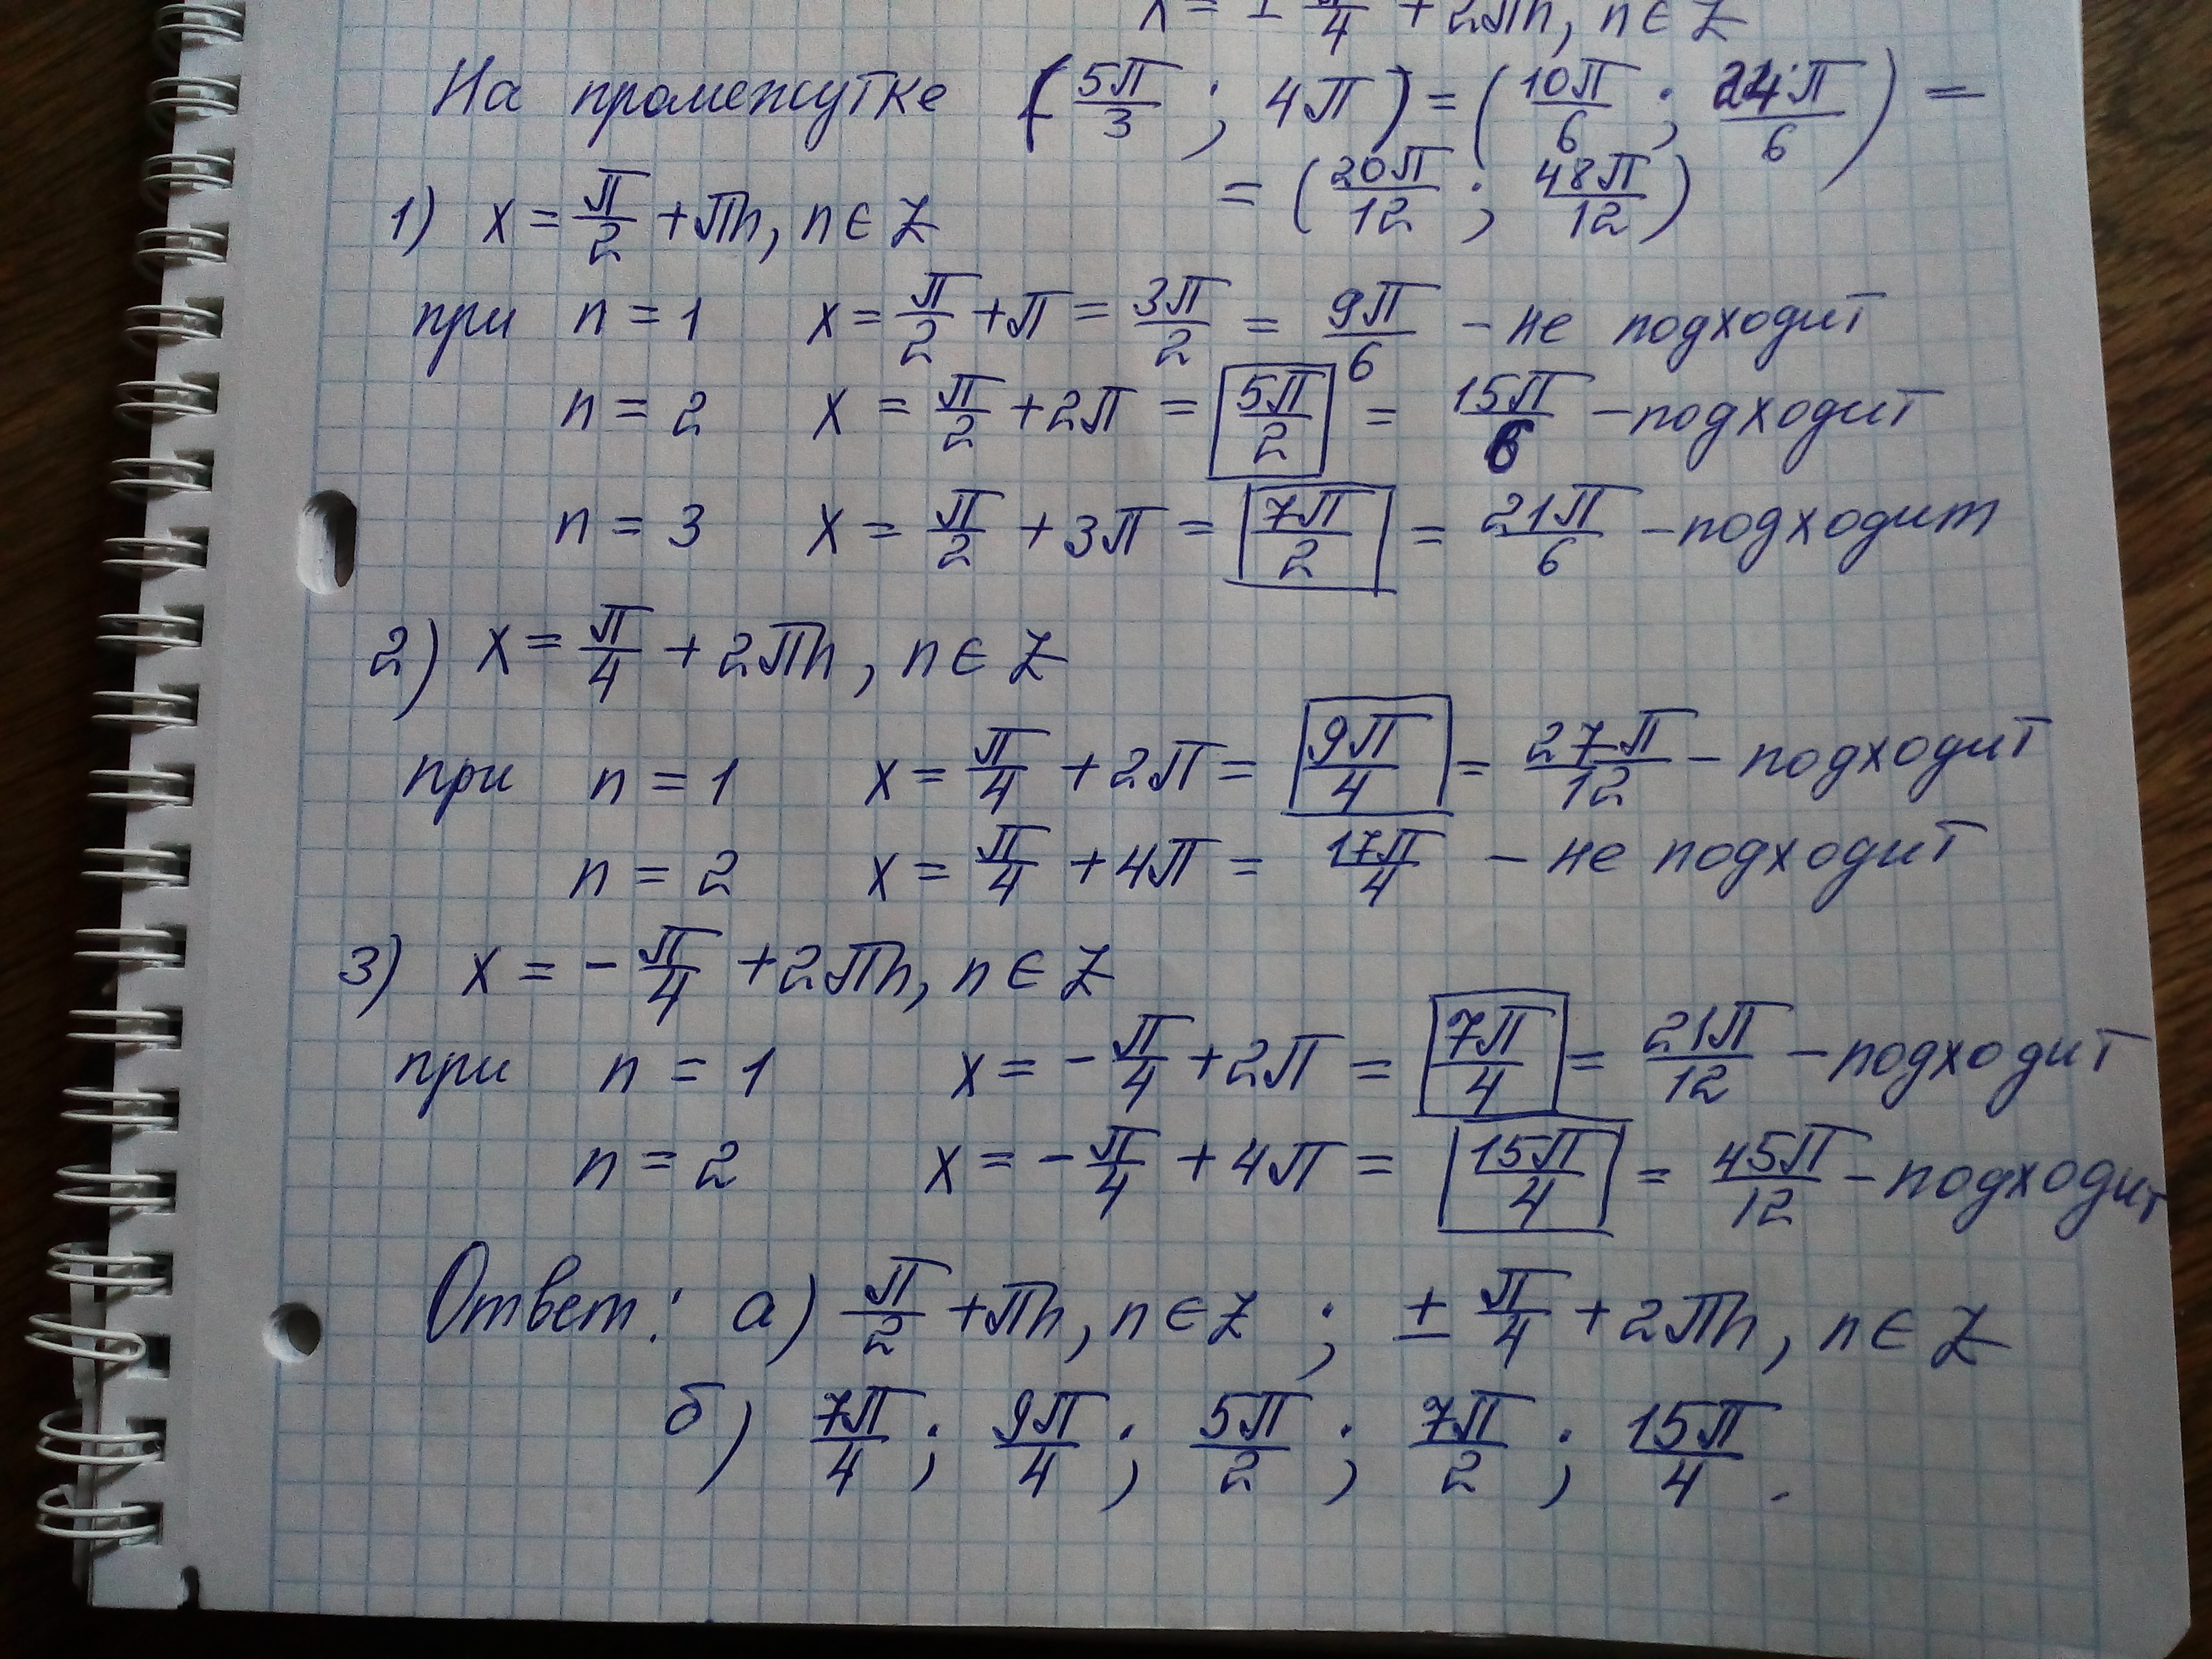 x = ± π/4 + 2πn, n ∈ Z
На промежутке (5π/3 ; 4π) = (10π/6 ; 24π/6) =
= (20π/12 ; 48π/12)
1) x = π/2 + πn, n ∈ Z
при n = 1 x = π/2 + π = 3π/2 = 9π/6 - не подходит
n = 2 x = π/2 + 2π = 5π/2 = 15π/6 - подходит
n = 3 x = π/2 + 3π = 7π/2 = 21π/6 - подходит
2) x = π/4 + 2πn, n ∈ Z
при n = 1 x = π/4 + 2π = 9π/4 = 27π/12 - подходит
n = 2 x = π/4 + 4π = 17π/4 - не подходит
3) x = - π/4 + 2πn, n ∈ Z
при n = 1 x = - π/4 + 2π = 7π/4 = 21π/12 - подходит
n = 2 x = - π/4 + 4π = 15π/4 = 45π/12 - подходит
Ответ: а) π/2 + πn, n ∈ Z ; ± π/4 + 2πn, n ∈ Z
б) 7π/4 ; 9π/4 ; 5π/2 ; 7π/2 ; 15π/4 .